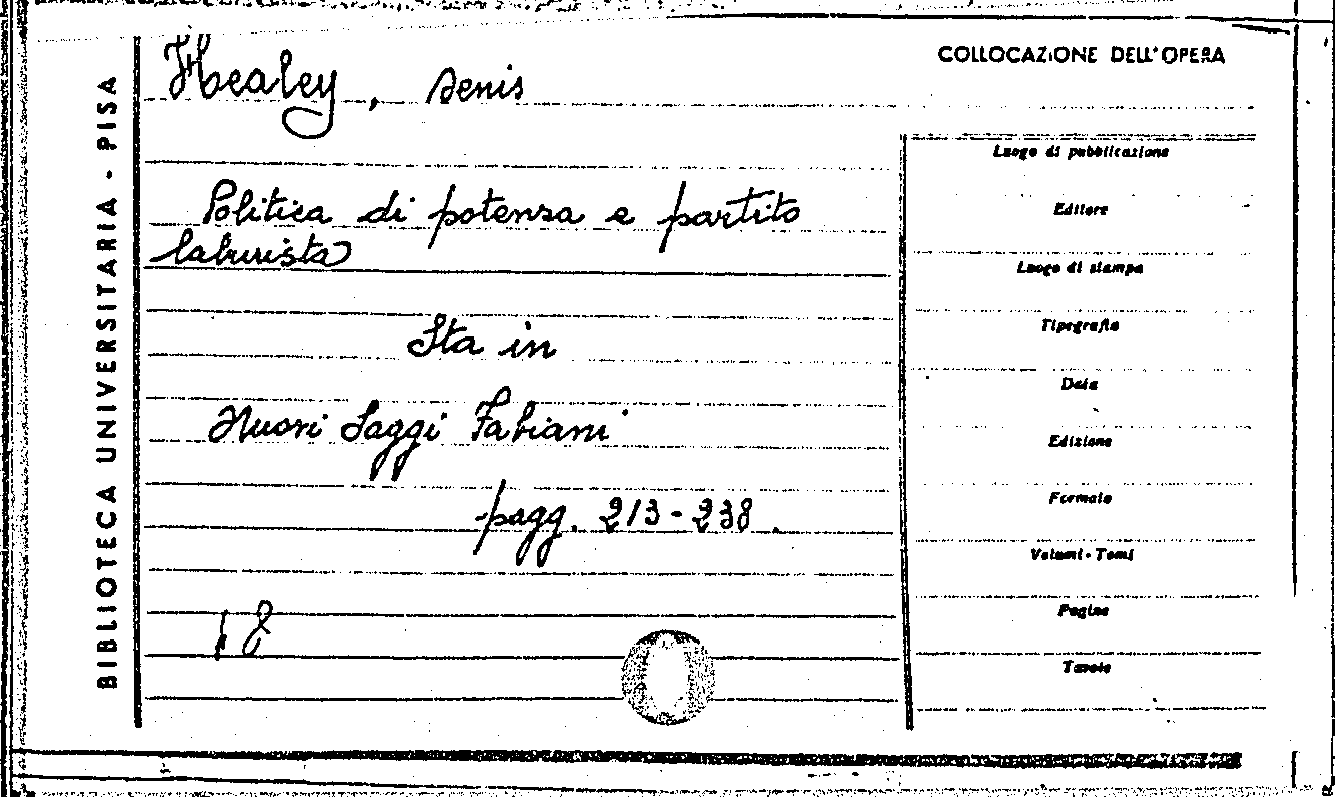 BIBLIOTECA UNIVERSITARIA - PISA
Healey, Denis
Politica di potenza e partito
laburista
Sta in
Nuovi Saggi Fabiani
pagg. 213-238.
18
COLLOCAZIONE DELL'OPERA
Luogo di pubblicazione
Editore
Luogo di stampa
Tipografia
Data
Edizione
Formato
Volumi - Tomi
Pagine
Tavole